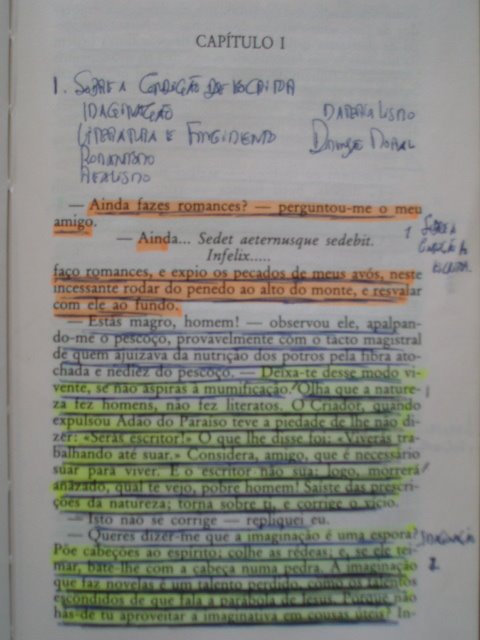 CAPÍTULO I
1. SOBRE A CONDIÇÃO DE ESCRITA
IMAGINAÇÃO
LITERATURA E FINGIMENTO
ROMANTISMO
REALISMO
MATERIALISMO
MORAL
— Ainda fazes romances? — perguntou-me o meu
amigo.
— Ainda... Sedet aeternusque sedebit.
Infelix.....
faço romances, e expio os pecados de meus avós, neste
incessante rodar do penedo ao alto do monte, e resvalar
com ele ao fundo.
— Estás magro, homem! — observou ele, apalpan-
do-me o pescoço, provavelmente com o tacto magistral
de quem ajuizava da nutrição dos potros pela fibra ato-
chada e nediez do pescoço. — Deixa-te desse modo vi-
vente, se não aspiras à mumificação. Olha que a nature-
za fez homens, não fez literatos. O Criador, quando
expulsou Adão do Paraíso teve a piedade de lhe não di-
zer: «Serás escritor!» O que lhe disse foi: «Viverás tra-
balhando até suar.» Considera, amigo, que é necessário
suar para viver. E o escritor não sua: logo, morrerá
añazado, qual te vejo, pobre homem! Saíste das prescri-
ções da natureza; torna sobre ti, e corrige o vício.
— Isto não se corrige — repliquei eu.
— Queres dizer-me que a imaginação é uma espora?
Põe cabeções ao espírito; colhe as rédeas; e, se ele tei-
mar, bate-lhe com a cabeça numa pedra. A imaginação
que faz novelas é um talento perdido, como os talentos
escondidos de que fala a parábola de Jesus. Porque não
hás-de tu aproveitar a imaginativa em cousas úteis? In-
1 SOBRE A
CONDIÇÃO DA
ESCRITA
IMAGINAÇÃO
2